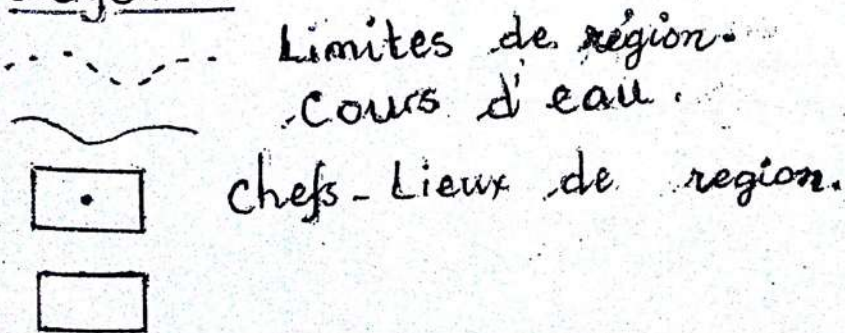 Limites de région.
Cours d'eau.
Chefs-Lieux de region.